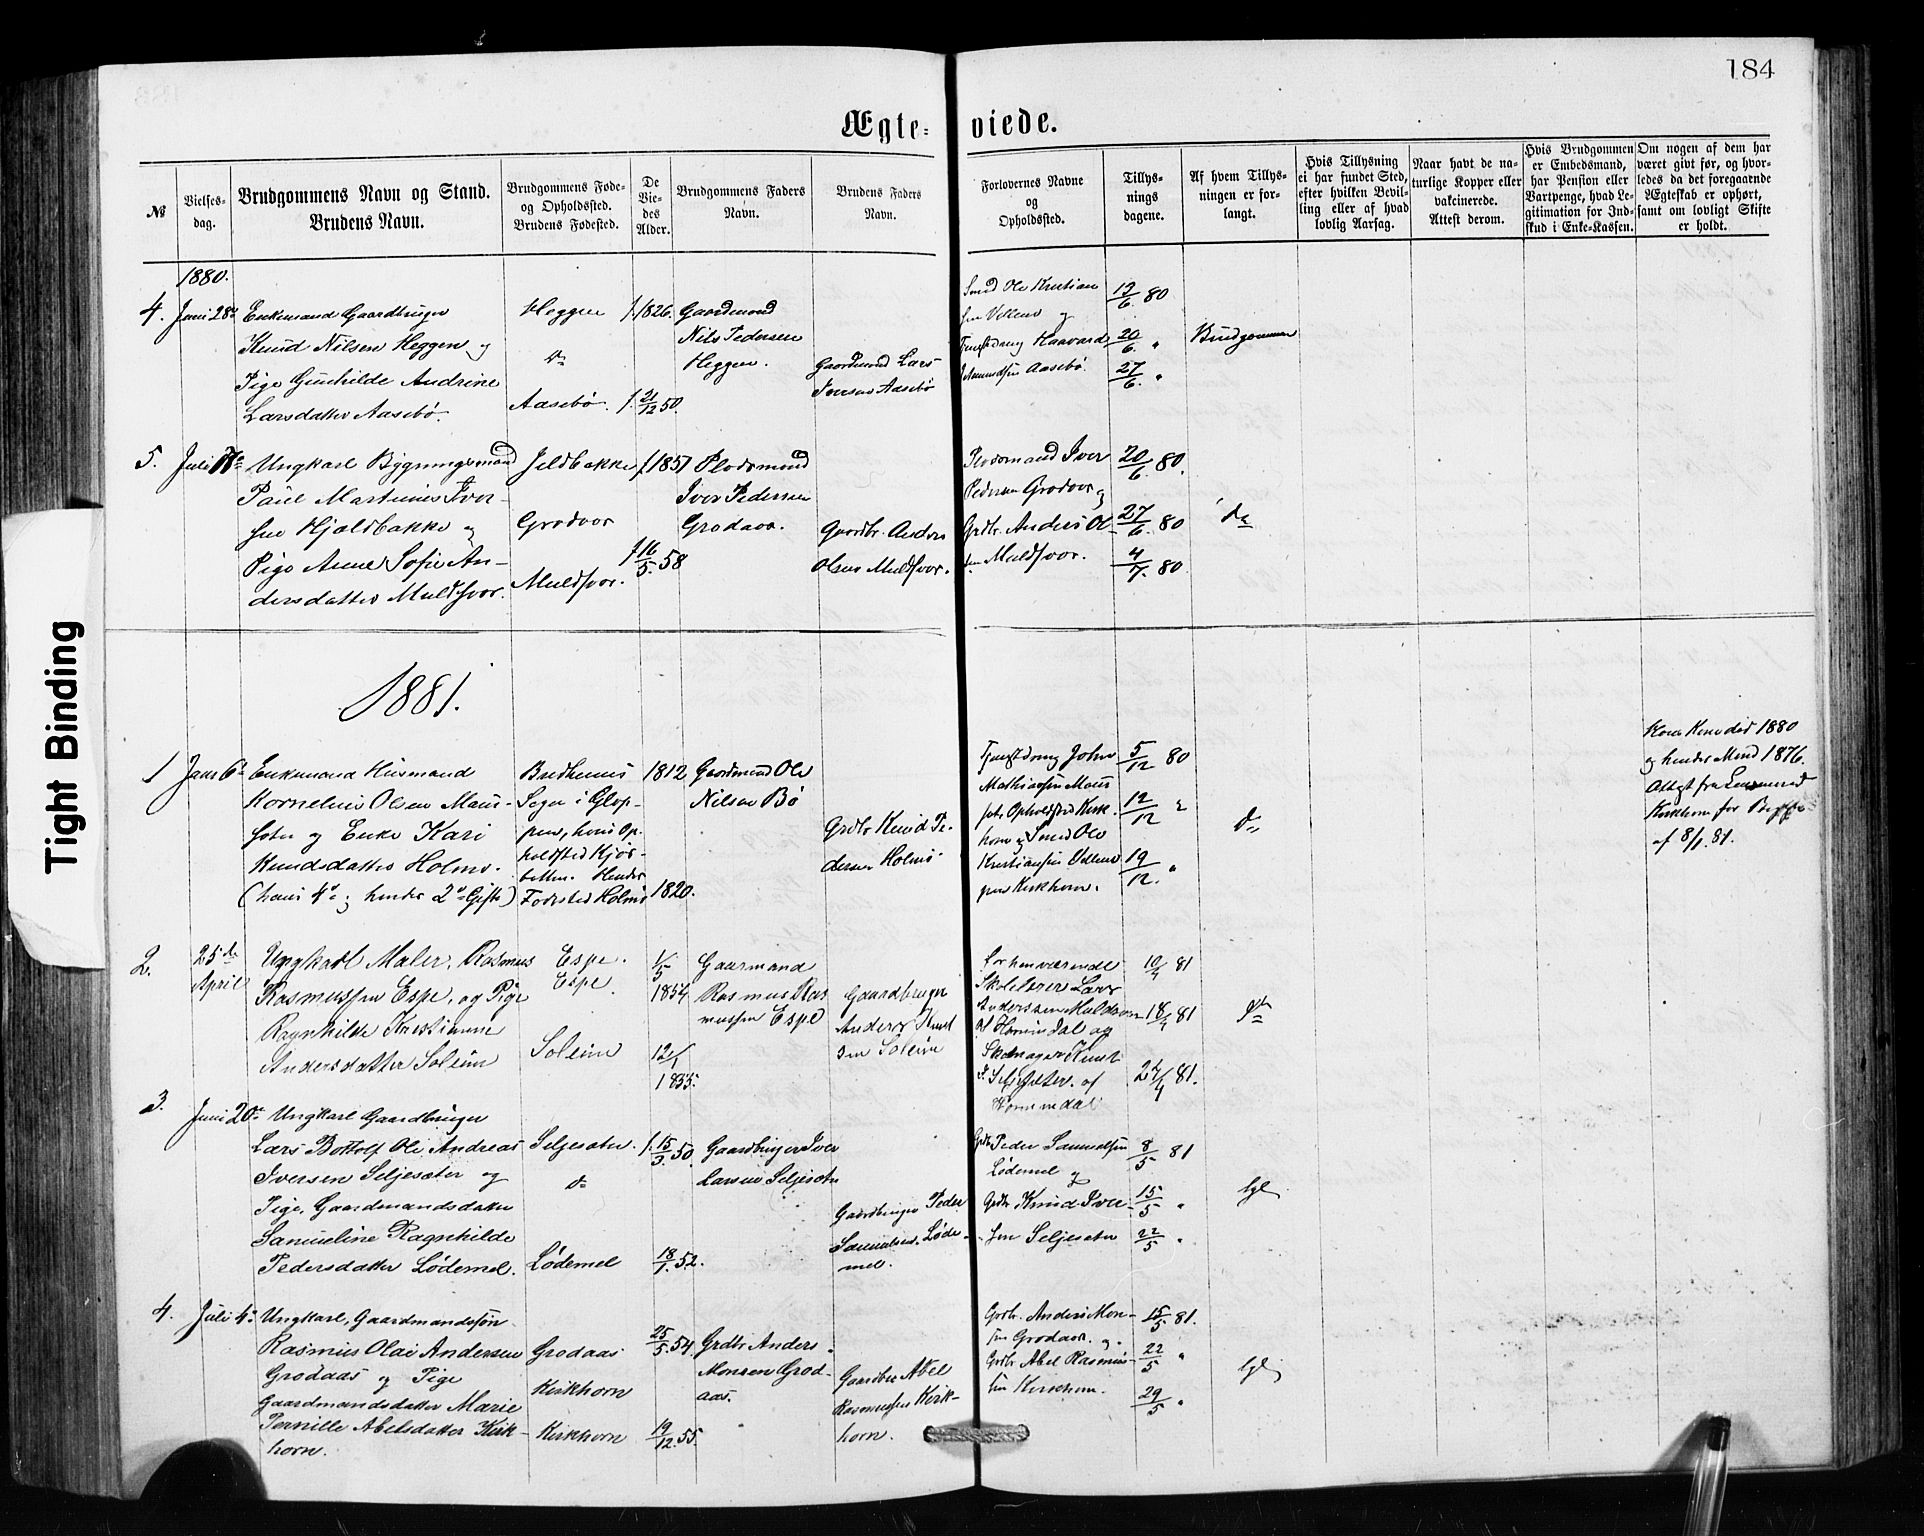 184
Ægte- viede.
№
Vielses-
dag.
Brudgommens Navn og Stand.
Brudens Navn.
Brudgommens Føde-
og Opholdssted.
Brudens Fødested.
De
Vie-
des
Alder.
Brudgommens Faders
Navn.
Brudens Faders
Navn.
Forlovernes Navne
og
Opholdssted.
Tillys-
nings
dagene.
Af hvem Tillys-
ningen er for-
langt.
Hvis Tillysning
ei har fundet Sted,
efter hvilken Bevil-
ling eller af hvad
lovlig Aarsag.
Naar havt de na-
turlige Kopper eller
vakcinerede.
Attest derom.
Hvis Brudgommen
er Embedsmand,
har Pension eller
Vartpenge, hvad Le-
gitimation for Ind-
skud i Enke-Kassen.
Om nogen af dem har
været givt før, og hvor-
ledes da det foregaaende
Ægteskab er ophørt,
samt om lovligt Skifte
er holdt.
1880.
4. Juni 28de
Enkemand Gaardbruger
Knud Nilsen Heggen og
Pige Gunhilde Andrine
Larsdatter Aasebø.
Heggen
do
Aasebø.
f. 1826.
f. 21/12 50.
Gaardmand
Nils Pedersen
Heggen.
Gaardmand Lars
Iversen Aasebø
Smed Ole Kristian
sen Vellene og
Haavard
Aasebø.
13/6 80
20/6 "
27/6 "
Brudgommen
5. Juli
Ungkarl Bygningsmand
Paul Martinus Iver-
sen Hjeldbakke og
Pige Anne Sofie An-
dersdatter Muldsvor.
Jeldbakke
Grodvor
Muldsvor.
f. 1851
f. 16/5. 58
Pladsmand
Iver Pedersen
Grodaas.
Gaardbr. Anders
Olsen Muldsvor.
Pladsmand Iver
Pedersen Grodvor og
Grdbr. Anders Ol-
sen Muldsvor.
20/6 80.
27/6 80
4/7. 80
do
1881.
1 Janr 6te
Enkemand Husmand
Kornelius Olsen Maur-
sæter og Enke Kari
Knudsdatter Holmø.
(hans 4de og hendes 2de Gifte)
Bredheims
Sogn i Glop-
pen, hans Op-
holdsted Kjøs-
botten. Hendes
Fødested Holmø
1812
1820.
Gaardmand Ole
Nilsen Bø
Grdbr Knud Pe-
dersen Holmø
Tjenstdreng Johan
Mathiassen Maur
Opholdsted Kirk-
horn og Smed Ole
Kristiansen Vellene
paa Kirkhorn.
5/12 80
12/12 "
19/12. "
do
Kone død 1880
og hendes Mand 1876.
Attest fra Lensmand
Kirkhorn for
af 8/1. 81.
2. 25de
April
Ungkarl Maler, Rasmus
Rasmussen Espe, og Pige
Ragnhilde Kristianne
Andersdatter Soleim
Espe.
Espe
Soleim
1/5
1854
12/1
1855.
Gaarmand
Rasmus Ras
mussen Espe
Gaardbruger
Anders Knud
sen Soleim
forhenværende
Skolelærer Lars
Anderssen Muldsvor
af Hornindal og
Skomager Knut
af
Hornindal
10/4 81
18/4 81
24/4 81.
do
3.
Juni 20de
Ungkarl Gaardbruger
Lars Bottolf Ole Andreas
Iversen Seljesæter og
Pige, Gaardmandsdatter
Samueline Ragnhilde
Pedersdatter Lødemel.
Seljesæter.
do
Lødemel
f. 15/3. 50.
18/1. 52.
Gaardbruger Iver
Larsen Seljesæter
Gaardbruger Peder
Samuelsen Løde-
mel.
Grdbr Peder Samuelsen
Lødemel og
Grdbr Knud Iver-
sen Seljesæter
8/5 81
15/5 "
22/5 "
lgl
4. Juli 4de
Ungkarl, Gaardmandssøn
Rasmus Olai Andersen
Grodaas og Pige
Gaardmandsdatter Marie
Pernille Abelsdatter Kirk-
horn.
Grodaas
Kirkhorn
Kirkhorn
25/5. 54.
19/12. 55.
Grdbr Anders
Monsen Grod-
aas.
Gaardbr Abel
Rasmussen Kirk-
horn.
Grdbr. Anders Mon-
sen Grodaas. og
Grdbr Abel Rasmus-
sen Kirkhorn.
15/5 81.
22/5 "
29/5 "
lgl
Tight Binding